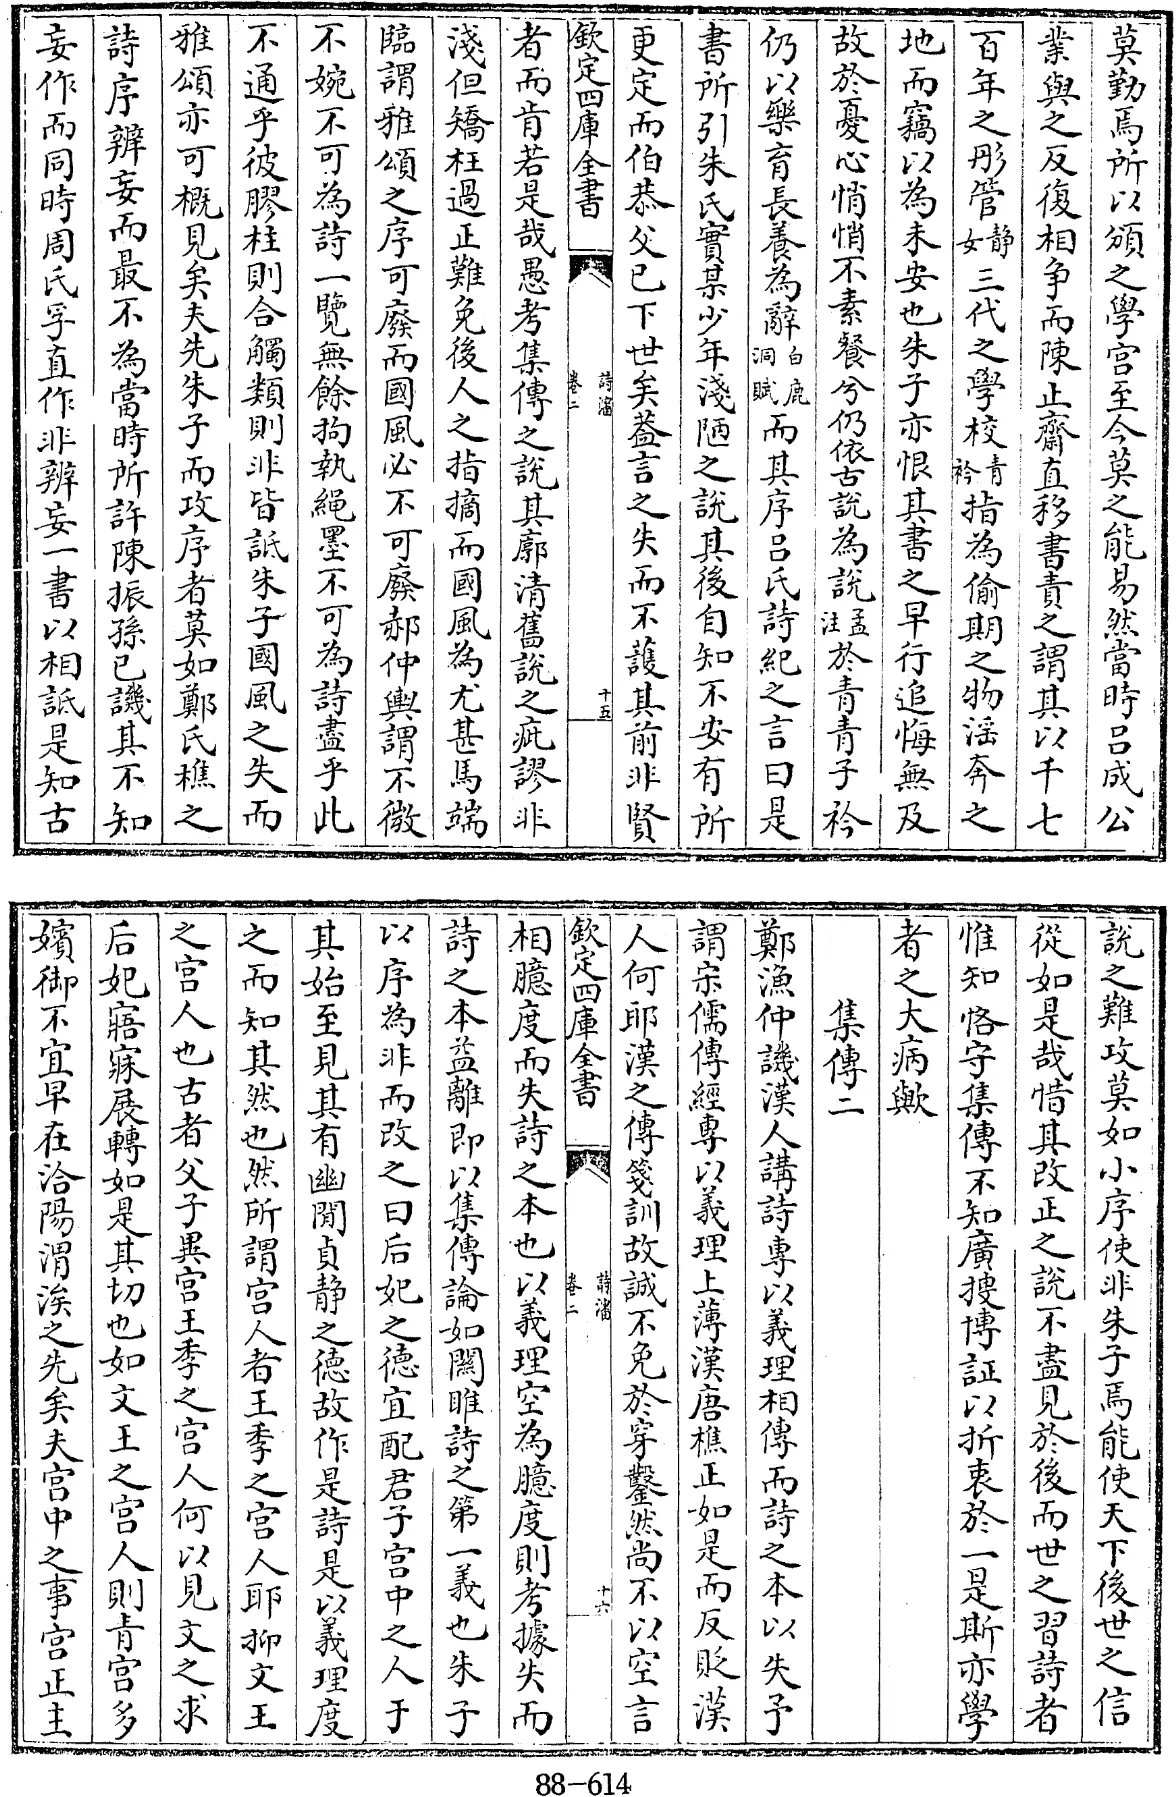 莫勤焉所以頒之學宫至今莫之能易然當時呂成公
業與之反復相争而陳止齋直移書責之謂其以千七
百年之彤管静女三代之學校青衿指為偷期之物淫奔之
地而竊以為未安也朱子亦恨其書之早行追悔無及
故於憂心悄悄不素餐兮仍依古說為說孟注於青青子衿
仍以樂育長養為辭白鹿洞賦而其序呂氏詩紀之言曰是
書所引朱氏實某少年淺陋之說其後自知不安有所
更定而伯恭父已下世矣葢言之失而不護其前非賢
欽定四庫全書
詩瀋
卷二
十五
者而肯若是哉愚考集傳之說其廓清舊說之疵謬非
淺但矯枉過正難免後人之指摘而國風為尤甚馬端
臨謂雅頌之序可廢而國風必不可廢郝仲輿謂不微
不婉不可為詩一覽無餘拘執繩墨不可為詩盡乎此
不通乎彼膠柱則合觸類則非皆詆朱子國風之失而
雅頌亦可概見矣夫先朱子而攻序者莫如鄭氏樵之
詩序辨妄而最不為當時所許陳振孫已譏其不知
妄作而同時周氏孚直作非辨妄一書以相詆是知古
說之難攻莫如小序使非朱子焉能使天下後世之信
從如是哉惜其改正之說不盡見於後而世之習詩者
惟知恪守集傳不知廣搜博証以折衷於一是斯亦學
者之大病歟
集傳二
鄭漁仲譏漢人講詩專以義理相傳而詩之本以失予
謂宗儒傳經專以義理上薄漢唐樵正如是而反貶漢
人何耶漢之傳箋訓故誠不免於穿鑿然尚不以空言
欽定四庫全書
詩瀋
卷二
十六
相臆度而失詩之本也以義理空為臆度則考據失而
詩之本益離即以集傳論如關雎詩之第一義也朱子
以序為非而改之曰后妃之德宜配君子宫中之人于
其始至見其有幽閒貞静之德故作是詩是以義理度
之而知其然也然所謂宫人者王季之宫人耶抑文王
之宫人也古者父子異宫王季之宫人何以見文之求
后妃寤寐展轉如是其切也如文王之宫人則青宫多
嬪御不宜早在洽陽渭涘之先矣夫宫中之事宫正主
88-614